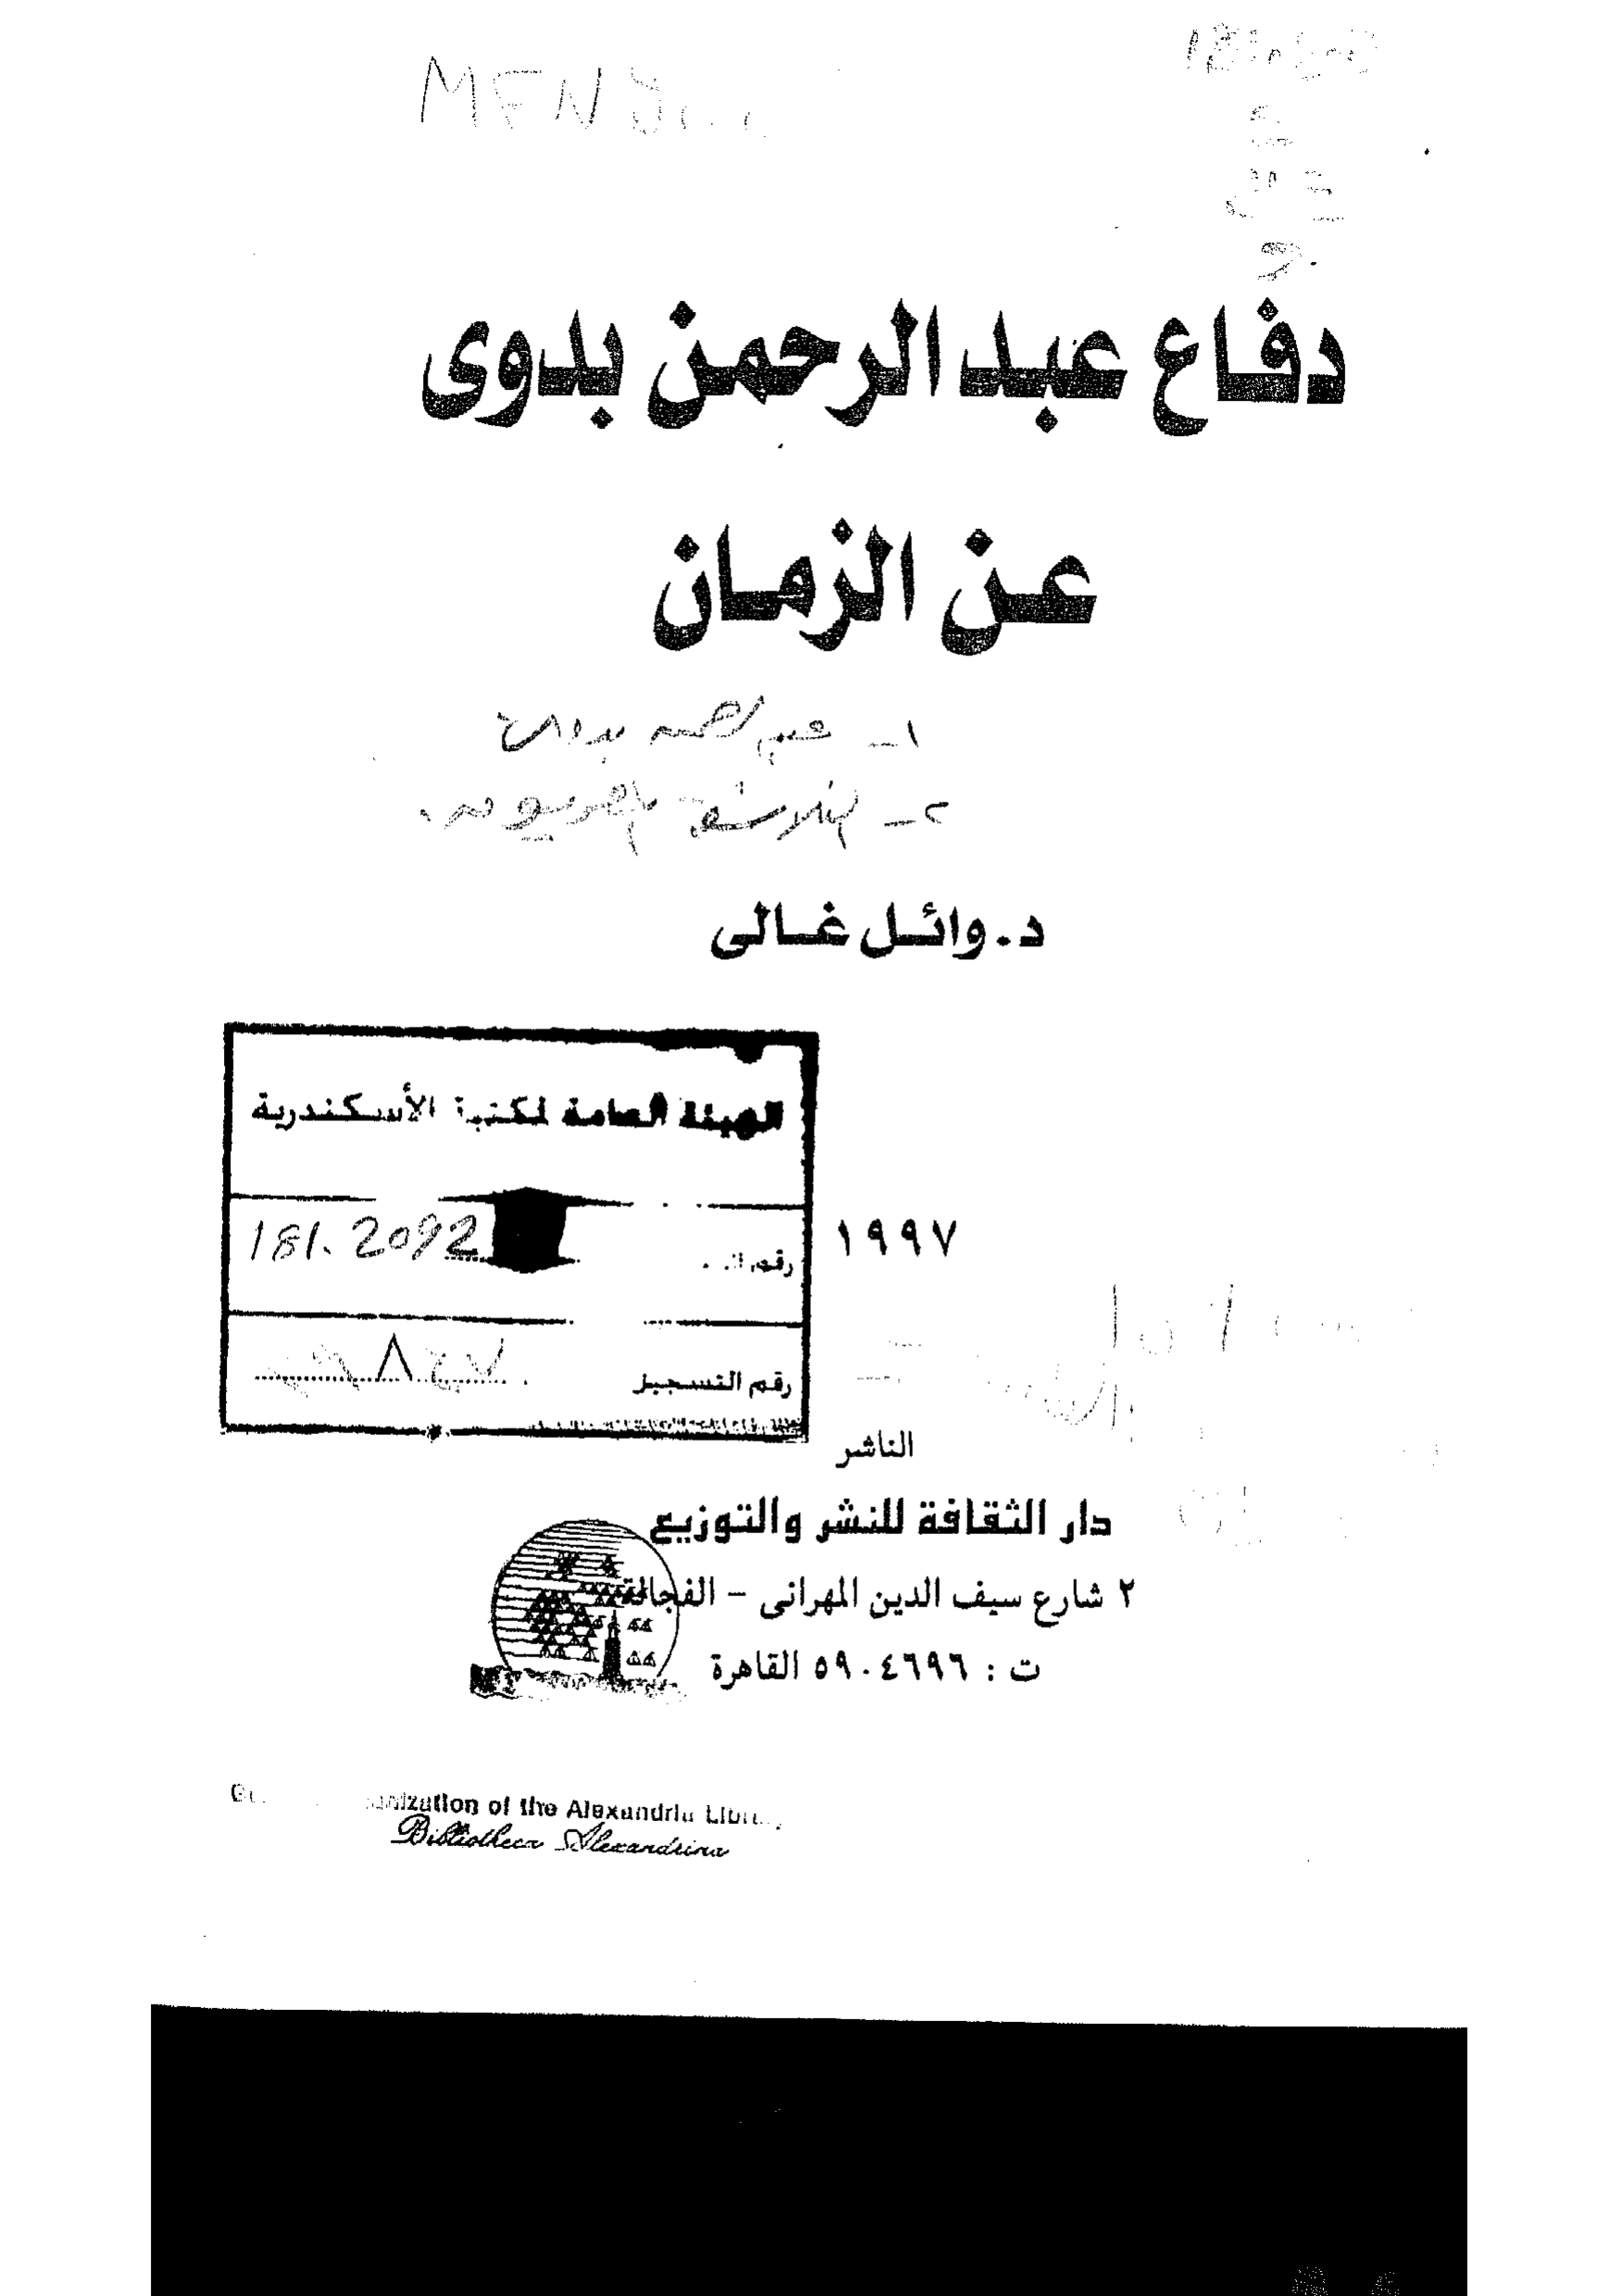 MFN
دفاع عبدالرحمن بدوى
عن الزمان
١ـ عبد الرحمن بدوى
٢ـ الفلاسفة المصريون.
د. وائل غالى
الهيئة العامة لمكتبة الأسكندرية
181.2092
رقم
رقم التسجيل
١٩٩٧
الناشر
دار الثقافة للنشر والتوزيع
٢ شارع سيف الدين المهرانى - الفجالة
ت : ٥٩٠٤٦٩٦ القاهرة
of the Alexandria
Bibliotheca Alexandrina